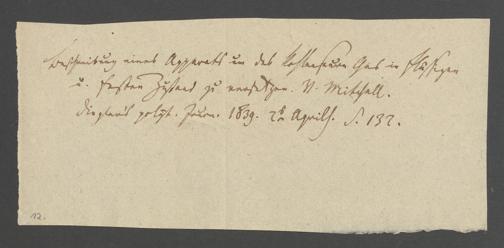 Beschreibung eines Apparats um das kohlensaure Gas in flüssigen
u. festen Zustand zu versetzen. V. Mitchell.
Dingler's polyt. Journ. 1839. 2s Aprilh. S. 132.
12.